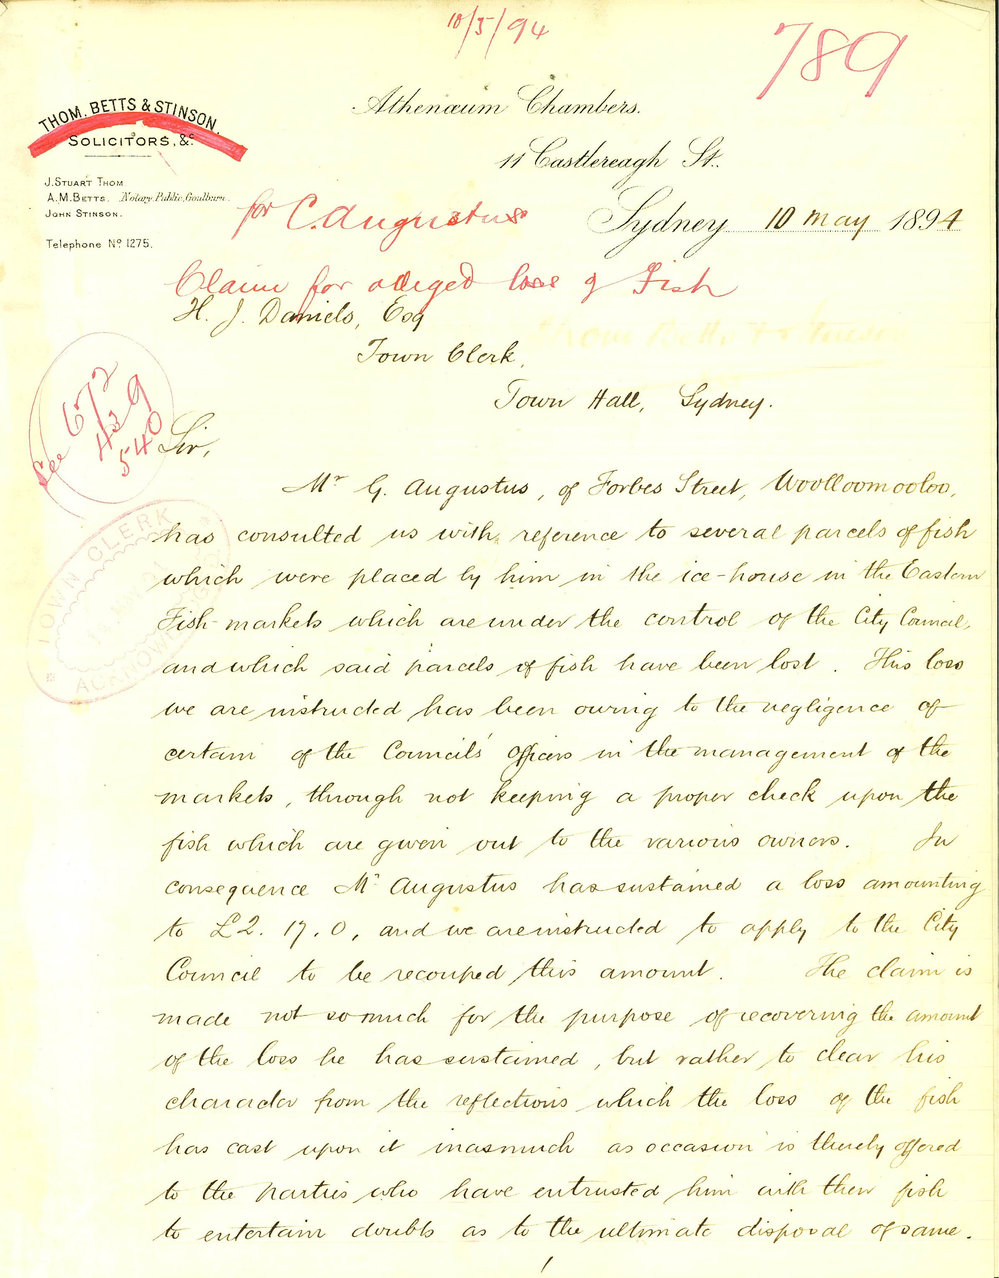 10/5/94
789
THOM. BETTS & STINSON.
SOLICITORS, &c.
J. STUART THOM
A.M. BETTS. Notary Public, Goulburn.
JOHN STINSON.
Telephone No. 1275.
Athenæum Chambers.
11 Castlereagh St.
Sydney 10 May 1894
for C. Augustus
Claim for alleged loss of Fish
H. J. Daniels, Esq
Town Clerk,
Town Hall, Sydney.
See 672
439
540
Sir,
TOWN CLERK
Mr G. Augustus, of Forbes Street, Woolloomooloo,
has consulted us with reference to several parcels of fish
which were placed by him in the ice-house in the Eastern
Fish-markets which are under the control of the City Council,
and which said parcels of fish have been lost. This loss
we are instructed has been owing to the negligence of
certain of the Councils' officers in the management of the
markets, through not keeping a proper check upon the
fish which are given out to the various owners. In
consequence Mr Augustus has sustained a loss amounting
to £2. 17. 0, and we are instructed to apply to the City
Council to be recouped this amount. The claim is
made not so much for the purpose of recovering the amount
of the loss he has sustained, but rather to clear his
character from the reflections which the loss of the fish
has cast upon it inasmuch as occasion is thereby offered
to the parties who have entrusted him with their fish
to entertain doubts as to the ultimate disposal of same.